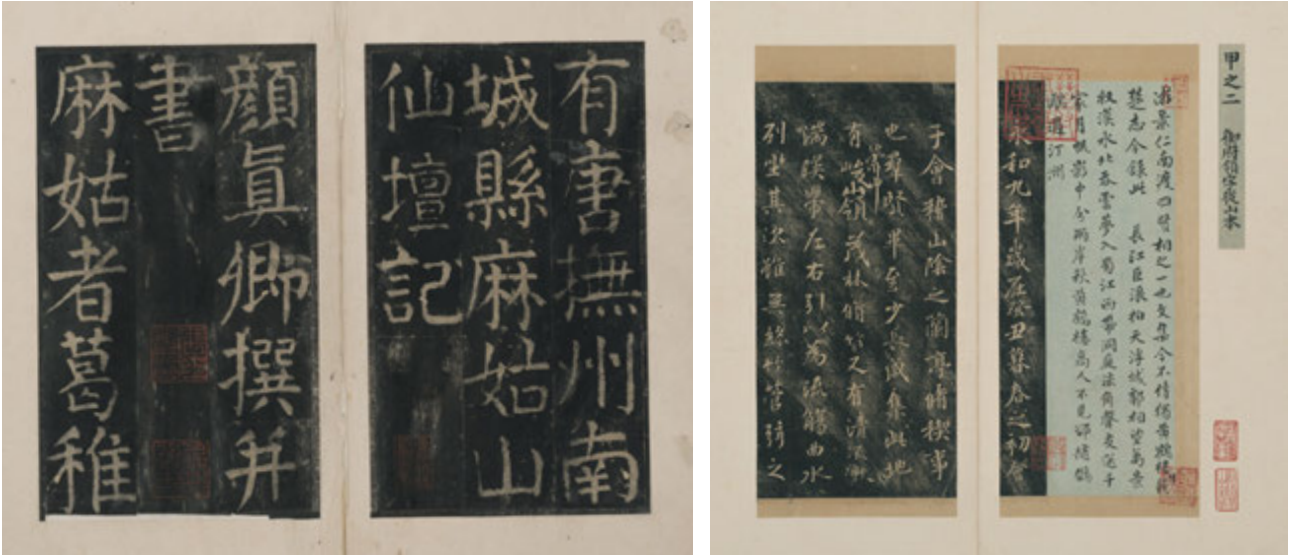 有唐撫州南
城縣麻姑山
仙壇記
顏眞卿撰并
書
麻姑者葛稚
甲之二 御府領字從山本
游景仁南渡四賢相之一也文集今不傳獨黃鶴樓
楚志今錄此 長江巨浪拍天浮城郭相望萬景
收漢水北吞雲夢入蜀江西帶洞庭流角聲交送千
家月帆影中分兩岸秋黃鶴樓高人不見卻隨鸚
鵡過汀洲
永和九年歲在癸丑暮春之初會
于會稽山陰之蘭亭脩稧事
也群賢畢至少長咸集此地
有崇山峻嶺茂林脩竹又有清流激
湍暎帶左右引以為流觴曲水
列坐其次雖無絲竹管弦之